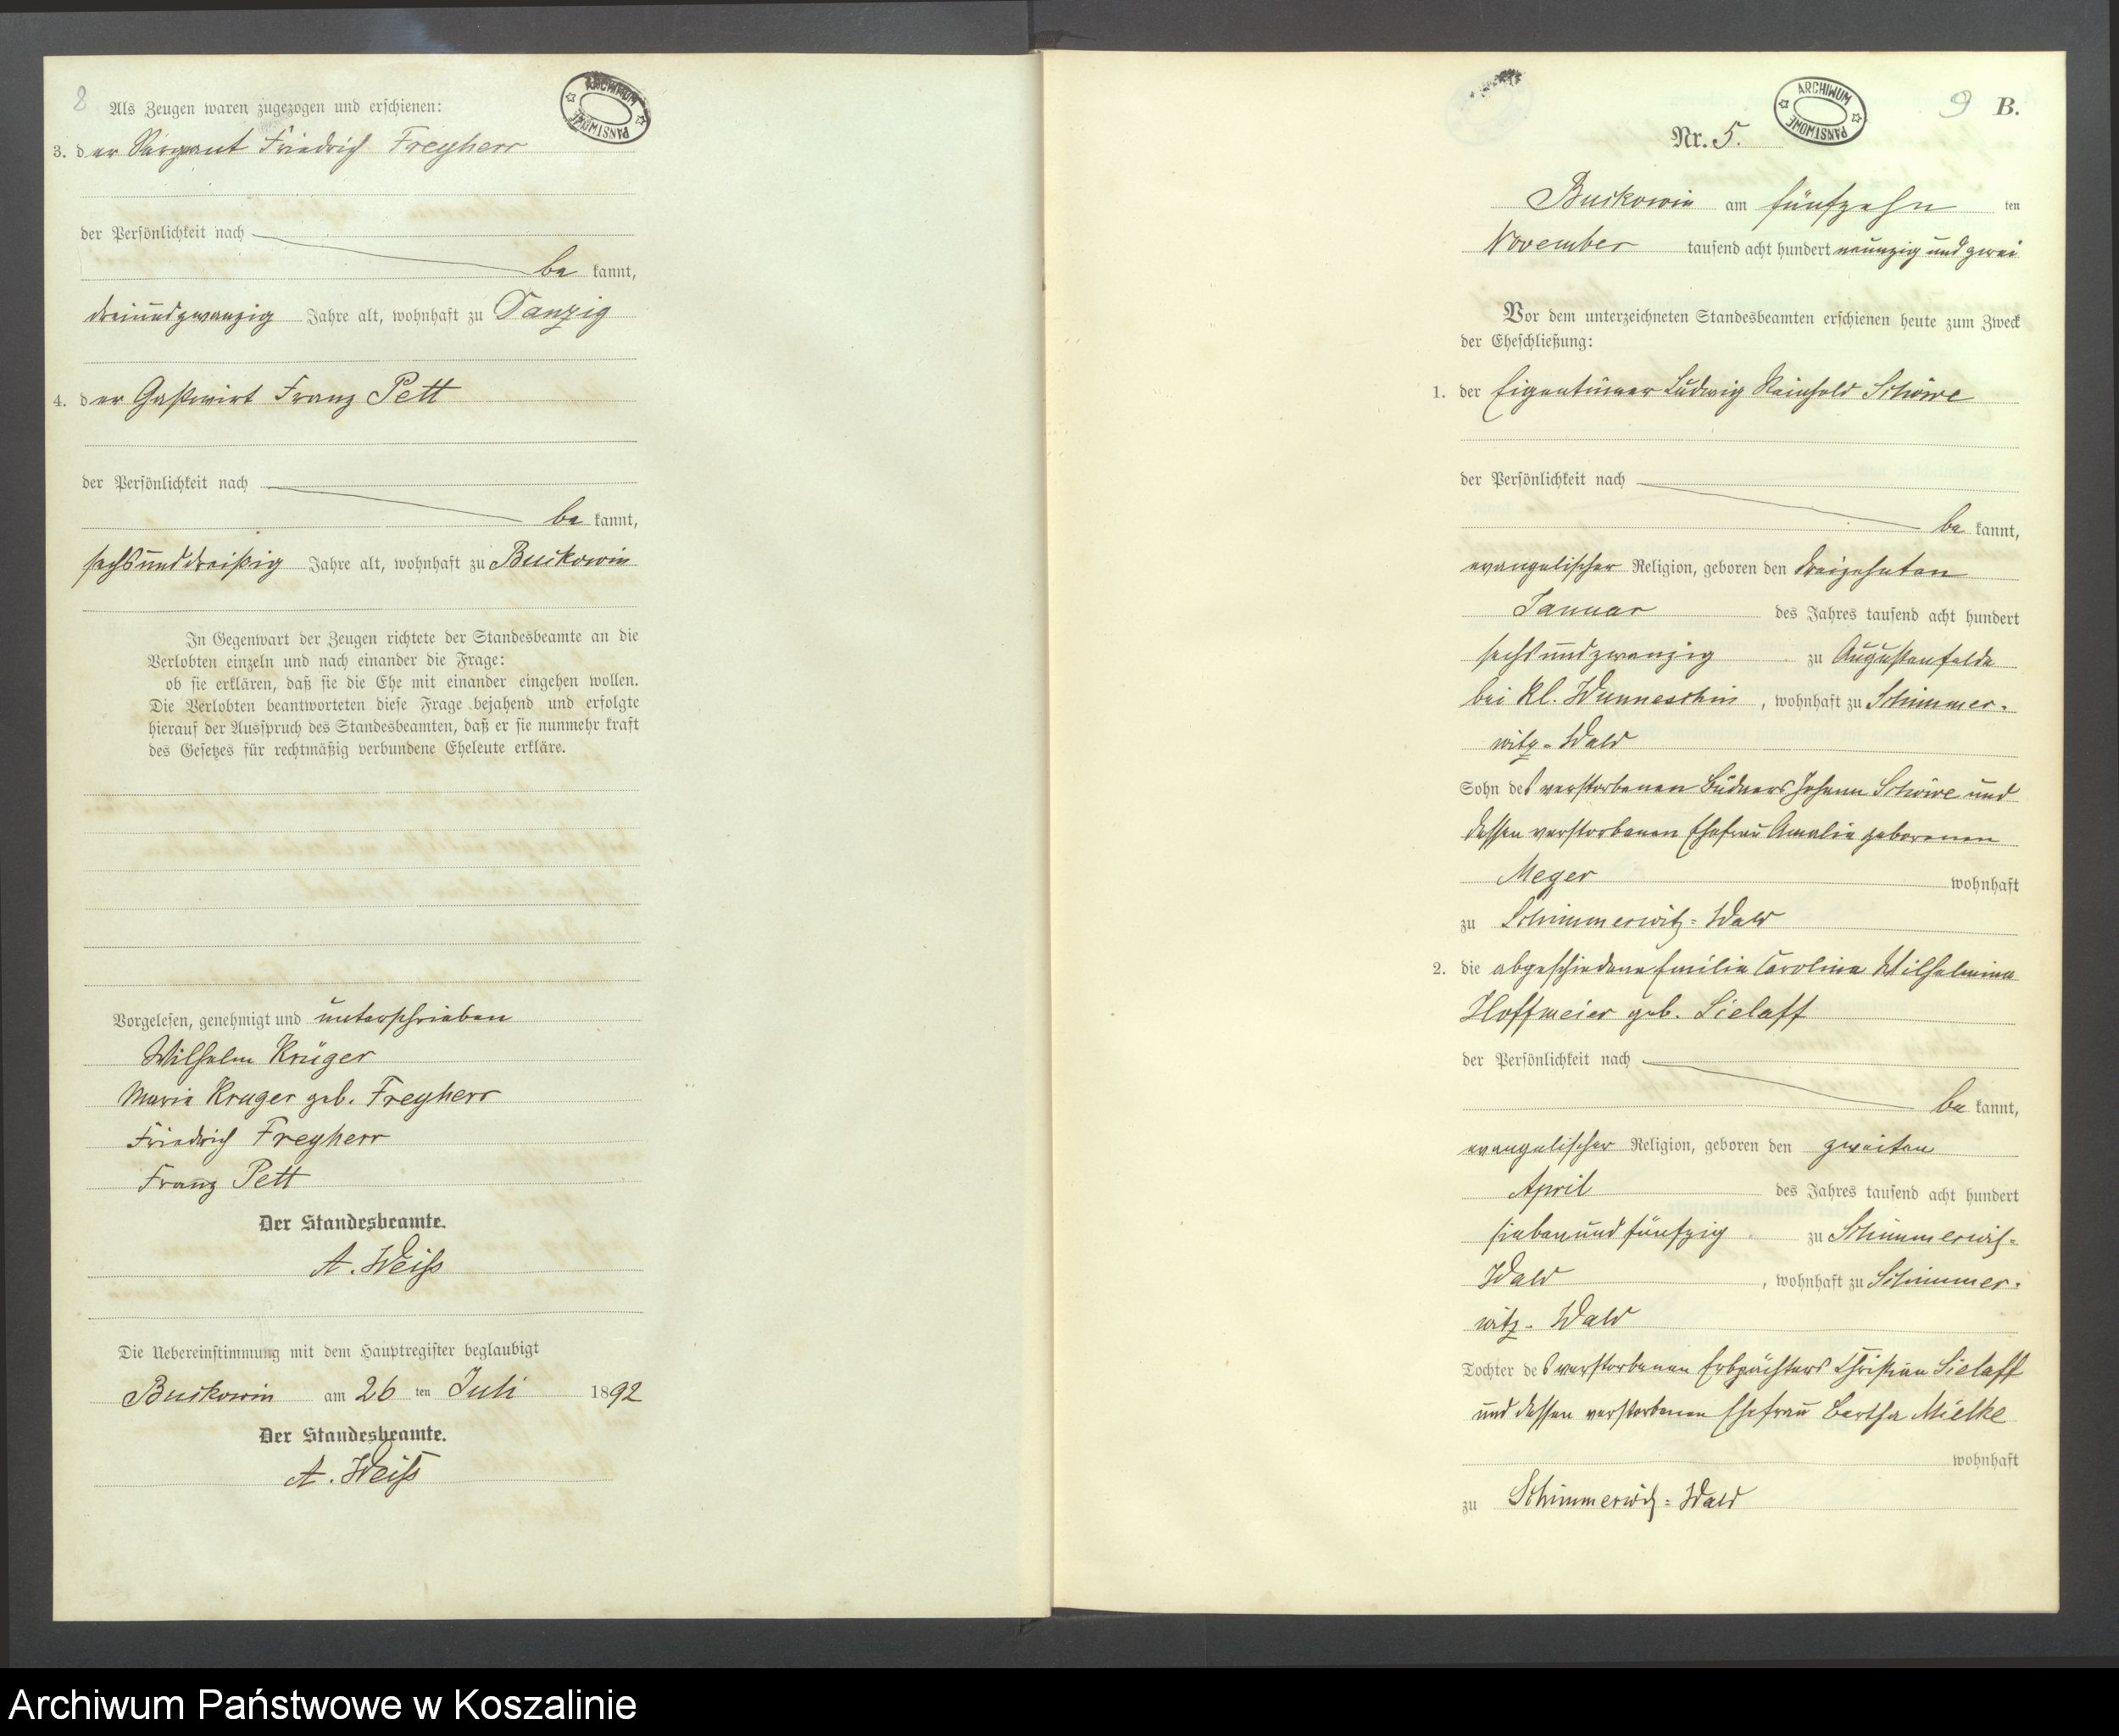 8
Als Zeugen waren zugezogen und erschienen:
ARCHIWUM PAŃSTWOWE
3. der Sergeant Friedrich Freyherr
der Persönlichkeit nach
be kannt,
dreiundzwanzig Jahre alt, wohnhaft zu Danzig
4. der Gastwirt Franz Pett
der Persönlichkeit nach
be kannt,
sechsunddreißig Jahre alt, wohnhaft zu Buckowin
In Gegenwart der Zeugen richtete der Standesbeamte an die
Verlobten einzeln und nach einander die Frage:
ob sie erklären, daß sie die Ehe mit einander eingehen wollen.
Die Verlobten beantworteten diese Frage bejahend und erfolgte
hierauf der Ausspruch des Standesbeamten, daß er sie nunmehr kraft
des Gesetzes für rechtmäßig verbundene Eheleute erkläre.
Vorgelesen, genehmigt und unterschrieben
Wilhelm Krüger
Marie Kruger geb. Freyherr
Friedrich Freyherr
Franz Pett
Der Standesbeamte.
A. Weiß
Die Uebereinstimmung mit dem Hauptregister beglaubigt
Buckowin am 26 ten Juli 1892
Der Standesbeamte.
A. Weiß
9 B.
ARCHIWUM PAŃSTWOWE
Nr. 5.
Buckowin am fünfzehn ten
November tausend acht hundert neunzig und zwei
Vor dem unterzeichneten Standesbeamten erschienen heute zum Zweck
der Eheschließung:
1. der Eigentümer Ludwig Reinhold Schöwe
der Persönlichkeit nach
be kannt,
evangelischer Religion, geboren den dreizehnten
Januar des Jahres tausend acht hundert
sechsundzwanzig zu Augustenfelde
bei Kl. Wunneschin, wohnhaft zu Schimmer-
witz-Wald
Sohn des verstorbenen Büdners Johann Schöwe und
dessen verstorbenen Ehefrau Amalie geborenen
Meyer wohnhaft
zu Schimmerwitz-Wald
2. die abgeschiedene Emilie Caroline Wilhelmine
Hoffmeier geb. Sielaff
der Persönlichkeit nach
be kannt,
evangelischer Religion, geboren den zweiten
April des Jahres tausend acht hundert
siebenundfünfzig zu Schimmerwitz-
Wald, wohnhaft zu Schimmer-
witz-Wald
Tochter des verstorbenen Erbpächters Christian Sielaff
und dessen verstorbenen Ehefrau Bertha Mielke
wohnhaft
zu Schimmerwitz-Wald
Archiwum Państwowe w Koszalinie